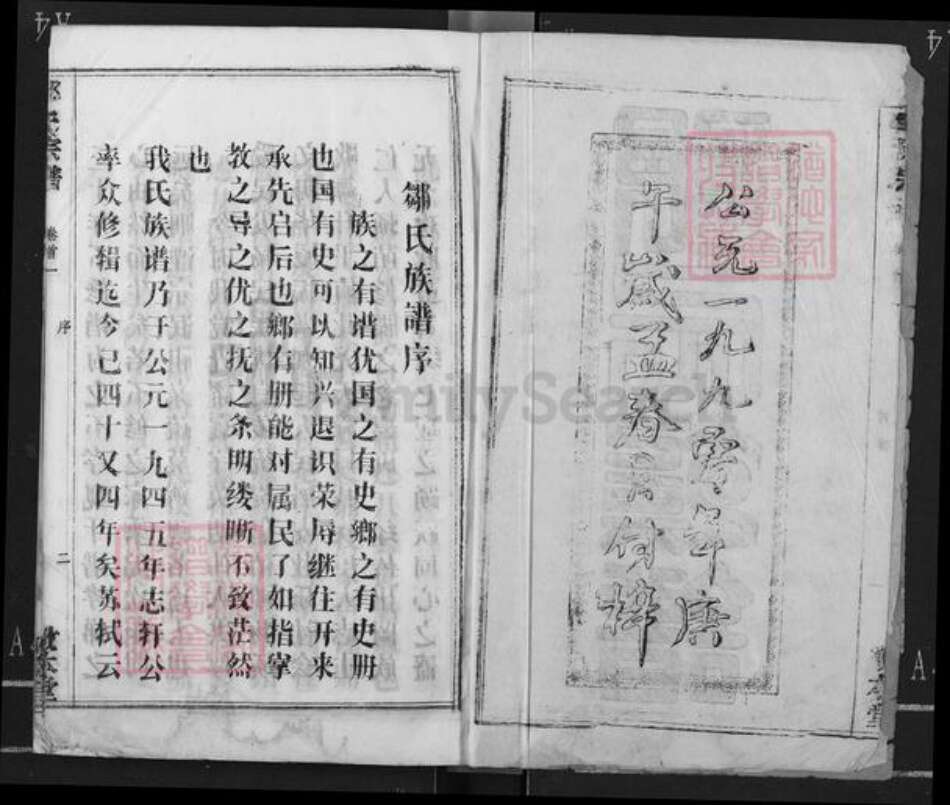 公元一九九零年庚
午歲孟春月付梓
鄒氏族譜序
族之有谱优国之有史鄉之有史册
也国有史可以知兴退识荣辱继住开来
承先启后也鄉有册能对属民了如指掌
教之导之优之抚之条明缕晰不致茫然
也
我氏族谱乃于公元一九四五年志轩公
率众修辑迄今已四十又四年矣苏轼云
卷首一
序
二
FamilySearch